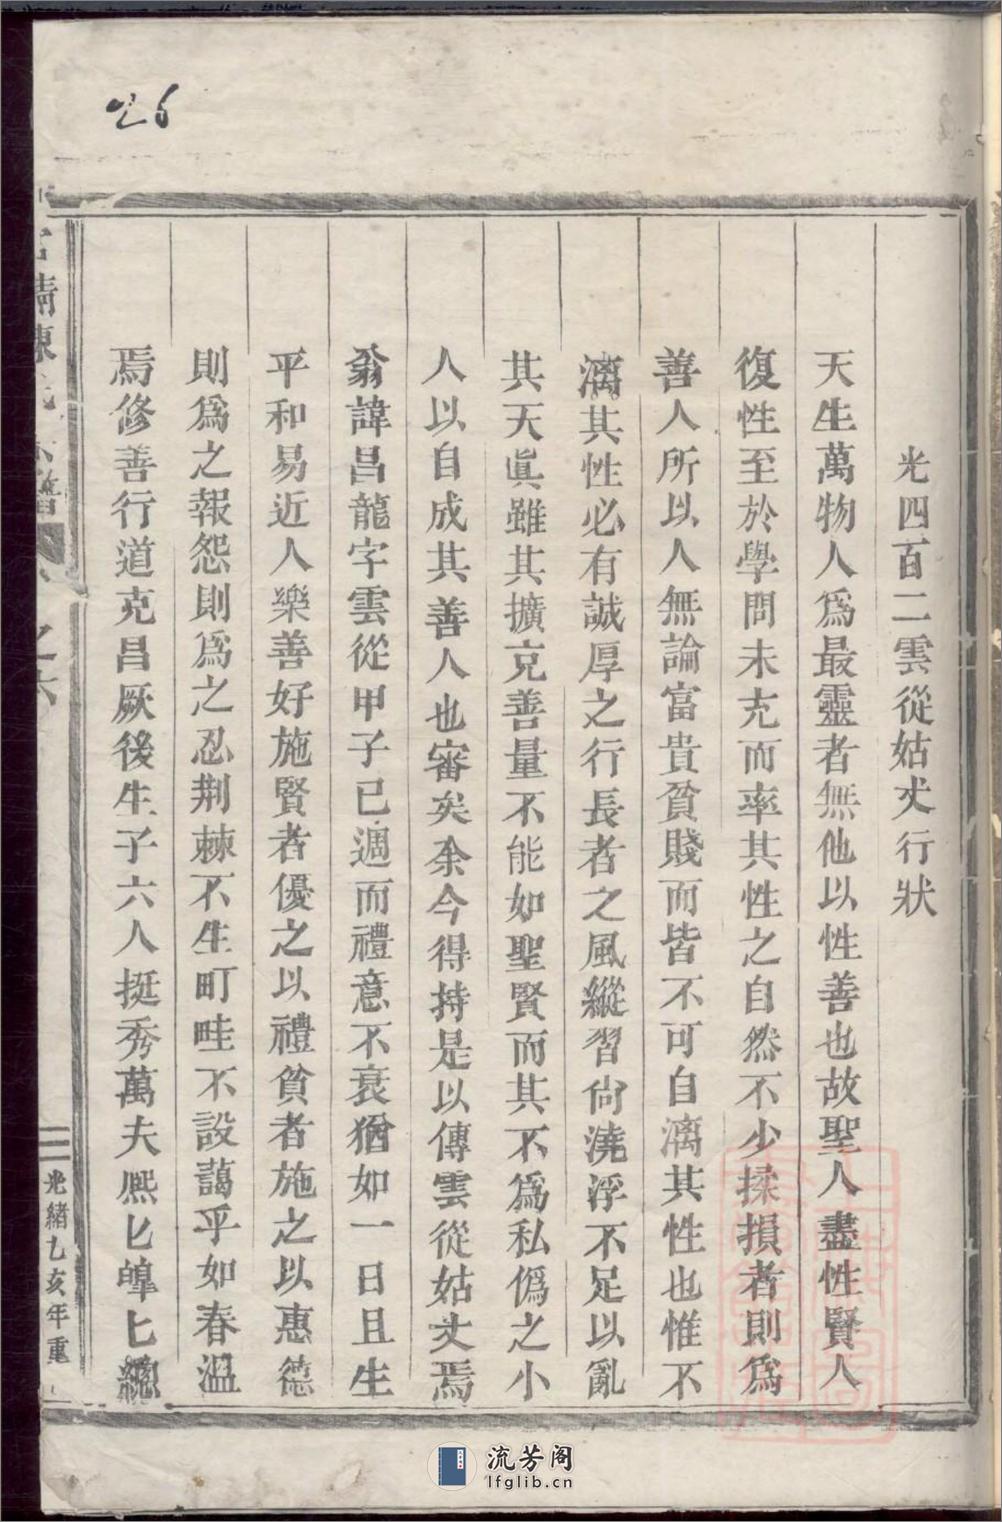 26
光四百二雲從姑丈行狀
天生萬物人爲最靈者無他以性善也故聖人盡性賢人
復性至於學問未充而率其性之自然不少揉損者則爲
善人所以人無論富貴貧賤而皆不可自漓其性也惟不
漓其性必有誠厚之行長者之風縱習尙澆浮不足以亂
其天眞雖其擴充善量不能如聖賢而其不爲私僞之小
人以自成其善人也審矣余今得持是以傳雲從姑丈焉
翁諱昌龍字雲從甲子已週而禮意不衰猶如一日且生
平和易近人樂善好施賢者優之以禮貧者施之以惠德
則爲之報怨則爲之忍荆棘不生町畦不設藹乎如春溫
焉修善行道克昌厥後生子六人挺秀萬夫熈匕皥匕總
清陳氏宗譜
之六
光緒乙亥年重
流芳阁
lfglib.cn